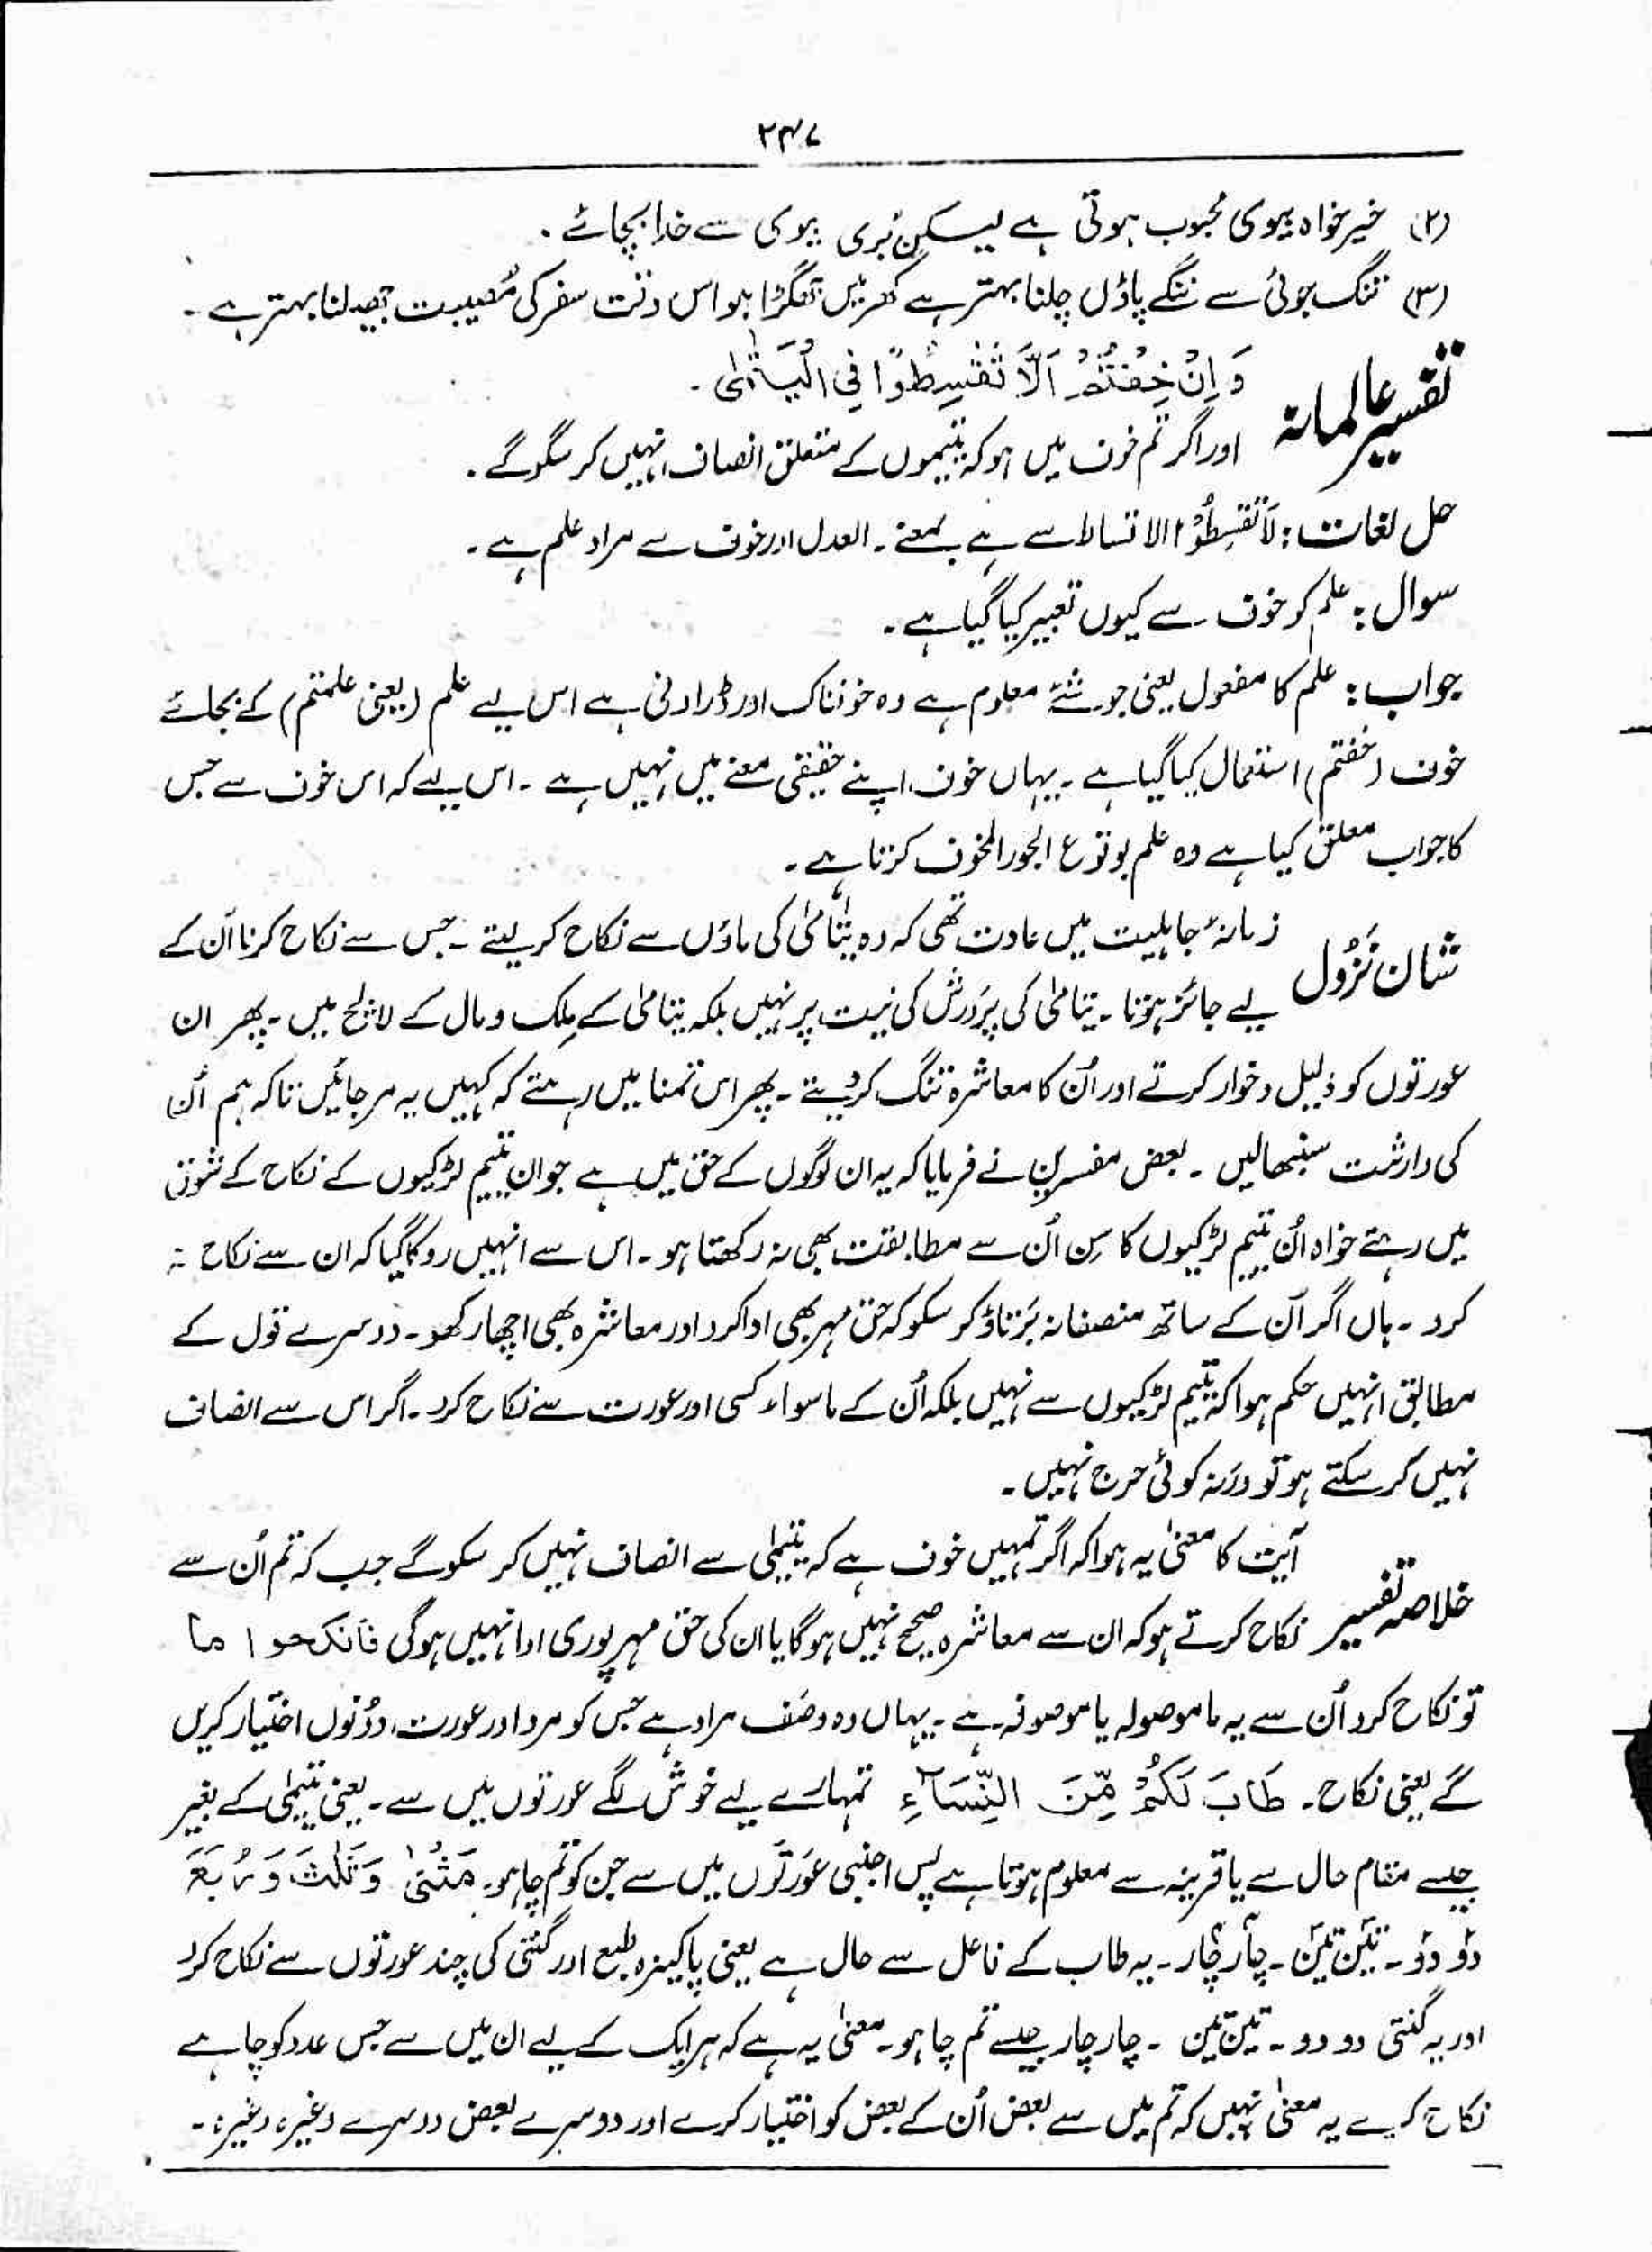 ۲۴۷
(۲) خیرخواہ بیوی محبوب ہوتی ہے لیکن بُری بیوی سے خدا بچائے۔
(۳) تنگ جوتی سے ننگے پاؤں چلنا بہتر ہے گھر میں جھگڑا ہو اس وقت سفر کی مُصیبت جھیلنا بہتر ہے۔
تفسیر عالمانہ وَ اِنْ خِفْتُمْ اَلَّا تُقْسِطُوْا فِی الْیَتٰمٰی۔
اور اگر تم خوف میں ہو کہ یتیموں کے متعلق انصاف نہیں کر سکو گے۔
حل لغات: لَا تُقْسِطُوْا الاقساط سے ہے بمعنے۔ العدل اور خوف سے مراد علم ہے۔
سوال: علم کو خوف سے کیوں تعبیر کیا گیا ہے۔
جواب: علم کا مفعول یعنی جو شئے معلوم ہے وہ خوفناک اور ڈراونی ہے اس لیے علم (یعنی علمتم) کے بجائے
خوف (خفتم) استعمال کیا گیا ہے۔ یہاں خوف اپنے حقیقی معنے میں نہیں ہے۔ اس لیے کہ اس خوف سے جس
کا جواب معلق کیا ہے وہ علم بوقوع الجور المخوف کرنا ہے۔
شان نزُول زمانۂ جاہلیت میں عادت تھی کہ وہ یتامیٰ کی ماؤں سے نکاح کر لیتے۔ جس سے نکاح کرنا اُن کے
لیے جائز ہوتا۔ یتامیٰ کی پرَورش کی نیت پر نہیں بلکہ یتامیٰ کے مِلک و مال کے لالچ میں۔ پھر ان
عورتوں کو ذلیل و خوار کرتے اور اُن کا معاشرہ تنگ کر دیتے۔ پھر اس تمنا میں رہتے کہ کہیں یہ مر جائیں تاکہ ہم اُن
کی وارثت سنبھالیں۔ بعض مفسرین نے فرمایا کہ یہ ان لوگوں کے حق میں ہے جو ان یتیم لڑکیوں کے نکاح کے شوق
میں رہتے خواہ اُن یتیم لڑکیوں کا سِن اُن سے مطابقت بھی نہ رکھتا ہو۔ اس سے انہیں روکا گیا کہ ان سے نکاح نہ
کرو۔ ہاں اگر اُن کے ساتھ منصفانہ برَتاؤ کر سکو کہ حق مہر بھی ادا کرو اور معاشرہ بھی اچھا رکھو۔ دوسرے قول کے
مطابق انہیں حکم ہوا کہ یتیم لڑکیوں سے نہیں بلکہ اُن کے ماسواء کسی اور عورت سے نکاح کرو۔ اگر اس سے انصاف
نہیں کر سکتے ہو تو ورنہ کوئی حرج نہیں۔
خلاصہ تفسیر آیت کا معنیٰ یہ ہوا کہ اگر تمہیں خوف ہے کہ یتیمٰی سے انصاف نہیں کر سکو گے جب کہ تم اُن سے
نکاح کرتے ہو کہ ان سے معاشرہ صحیح نہیں ہوگا یا ان کی حق مہر پوری ادا نہیں ہوگی فانکحوا ما
تو نکاح کرو اُن سے یہ ما موصولہ یا موصوفہ ہے۔ یہاں وہ وصَف مراد ہے جس کو مرد اور عورت، دوُنوں اختیار کریں
گے یعنی نکاح۔ طَابَ لَکُمْ مِّنَ النِّسَآءِ تمہارے لیے خوش لگے عورتوں میں سے۔ یعنی یتیمٰی کے بغیر
جیسے مقام حال سے یا قرینہ سے معلوم ہوتا ہے پس اجنبی عَورتَوں میں سے جن کو تم چاہو۔ مَثْنٰی وَ ثُلٰثَ وَ رُبٰعَ
دوَ دوَ۔ تیَن تیَن۔ چاَر چاَر۔ یہ طاب کے فاعل سے حال ہے یعنی پاکیزہ طبع اور گنتی کی چند عورتوں سے نکاح کرو
اور یہ گنتی دو دو۔ تین تین ۔ چار چار جیسے تم چاہو۔ معنیٰ یہ ہے کہ ہر ایک کے لیے ان میں سے جس عدد کو چاہے
نکاح کرے یہ معنیٰ نہیں کہ تم میں سے بعض اُن کے بعض کو اختیار کرے اور دوسرے بعض دوسرے وغیرہ وغیرہ۔